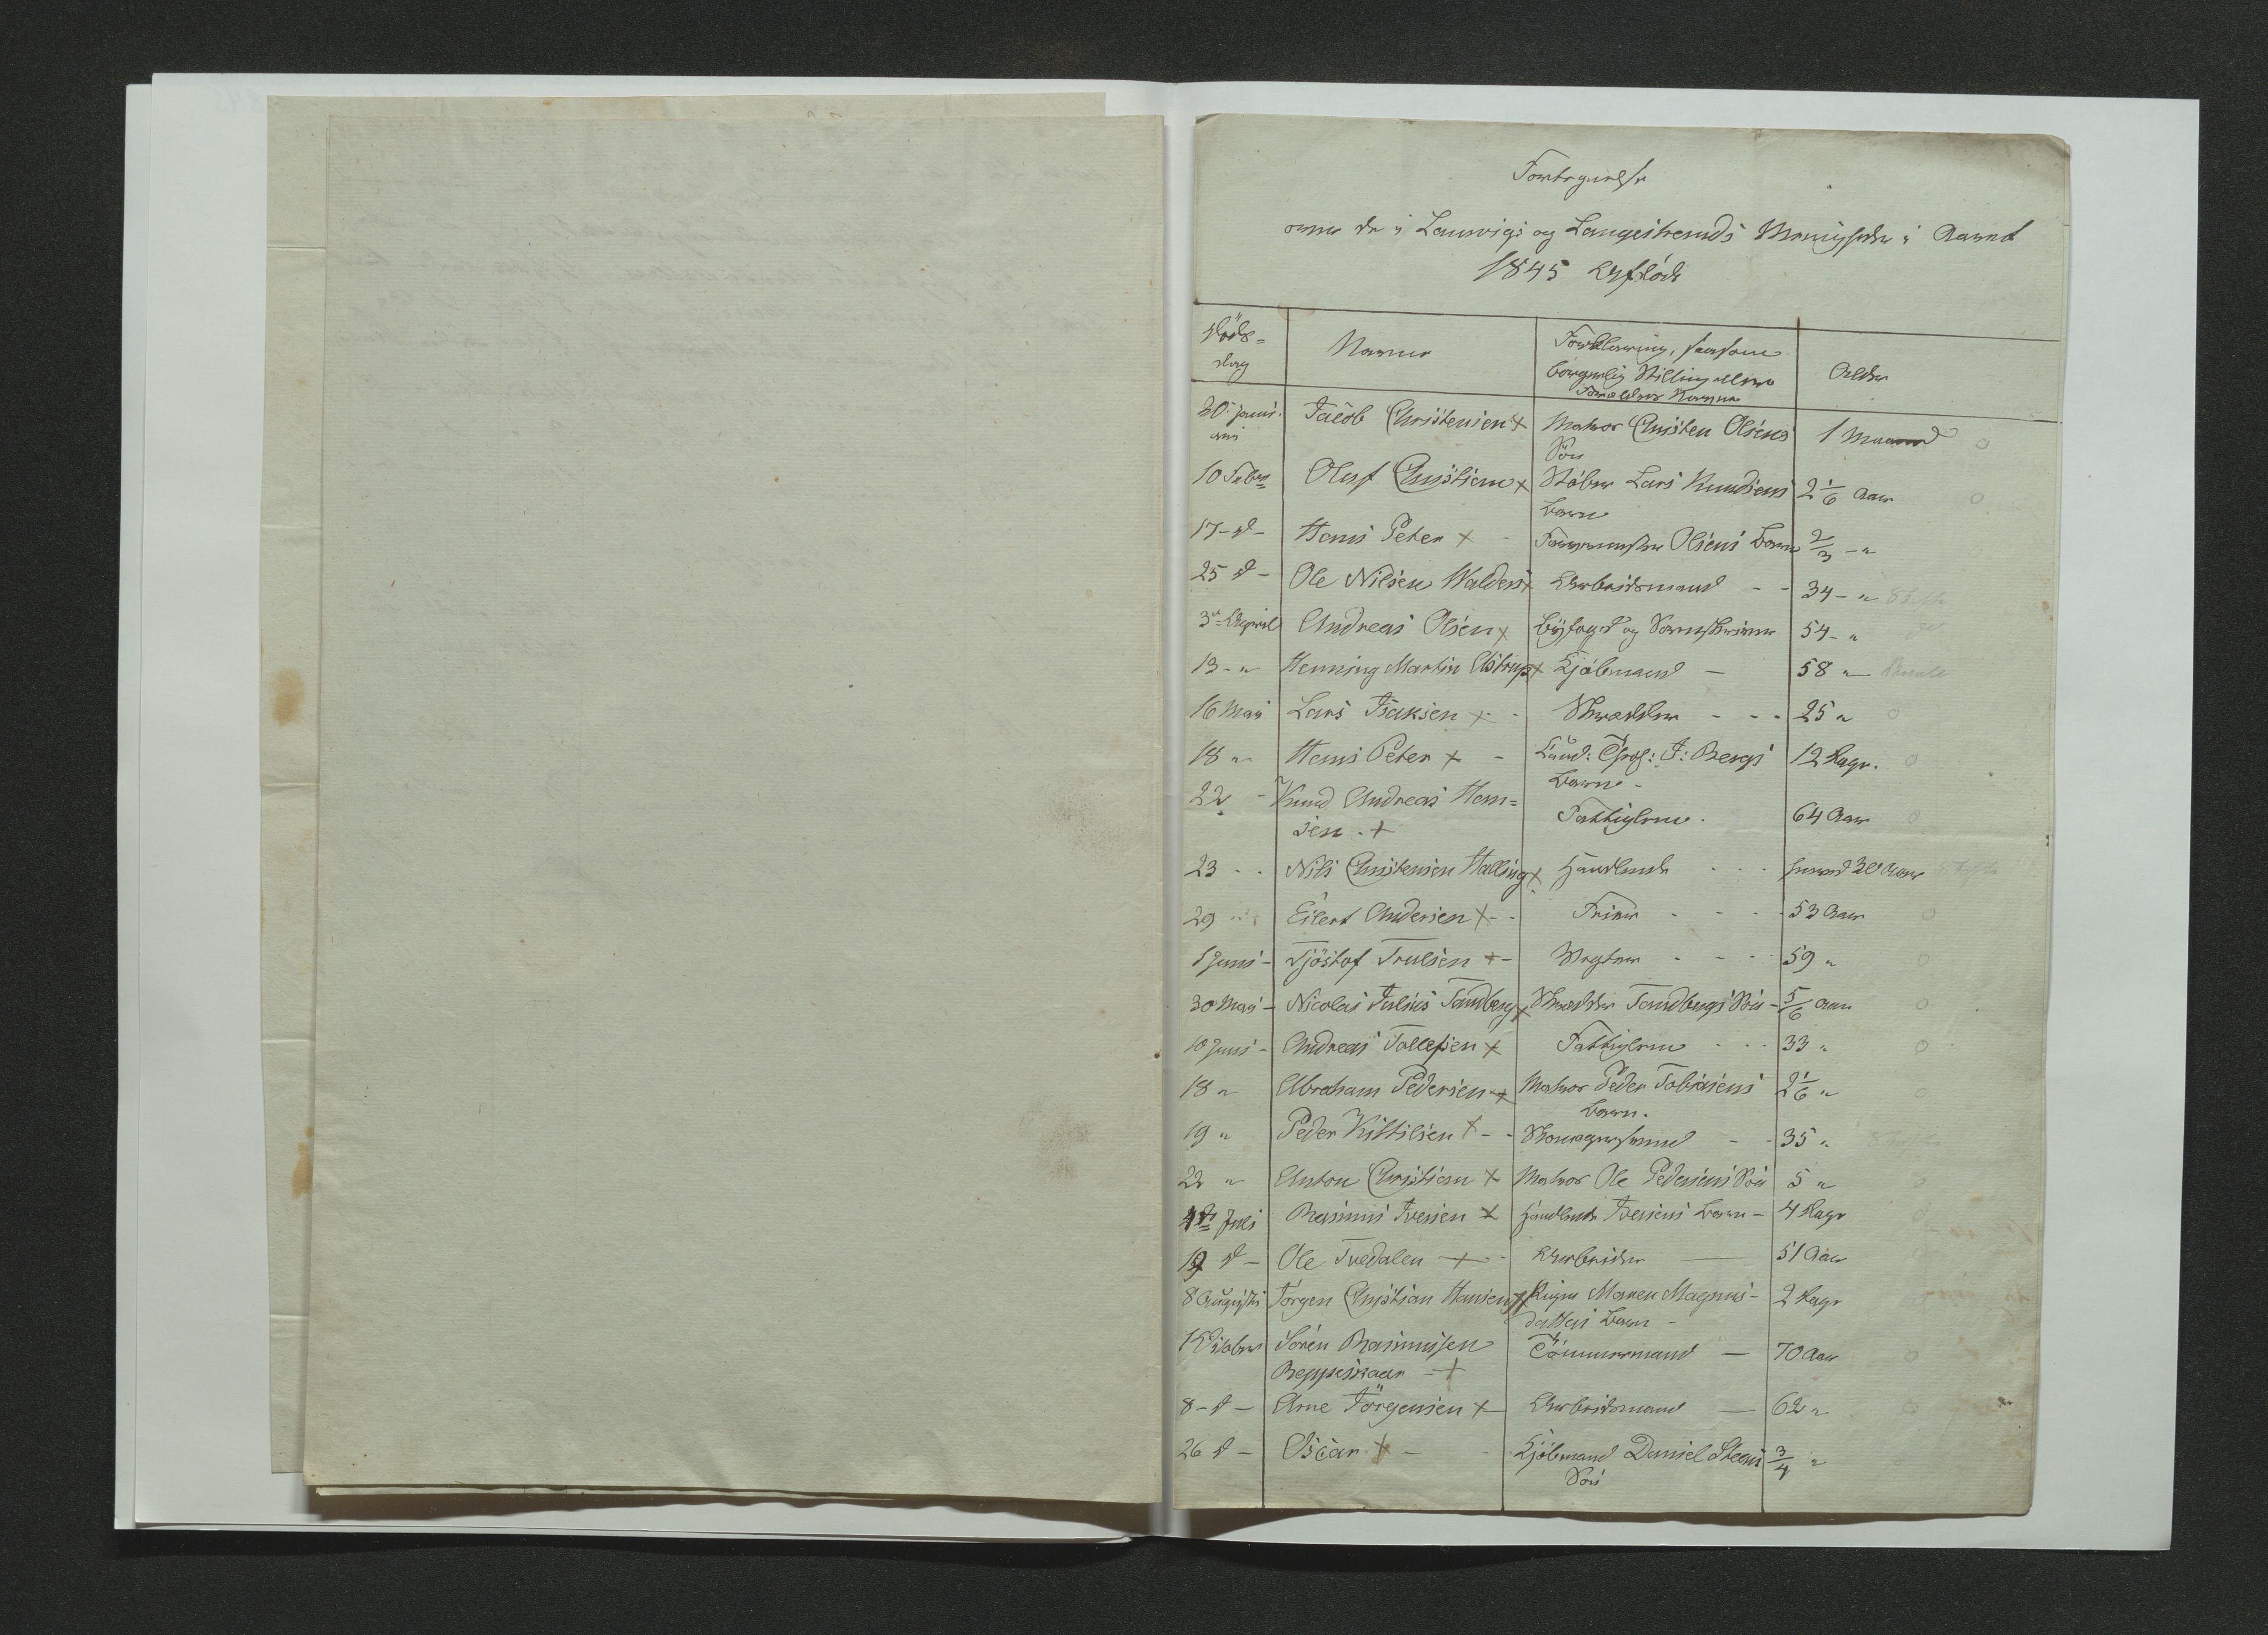 Fortegnelse
over de i Laurvigs og Langestrands Menigheder i Aaret
1845 Afdöde
Döds-
dag
Navne
Forklaring, saasom
borgerlig Stilling eller
Forældres Navne
Alder
20 Janu-
ari
Jacob Christensen +
Matros Christen Olsens
Sön
1 Maaned
10 Febr
Oluf Christian +
Støber Lars Knudsens
Barn
2 1/6 Aar
17 - d -
Hans Peter +
Olsens Barn
2/3 - "
25 d -
Ole Nilsen Walders +
Arbeidsmand - -
34 - "
3de April
Andreas Olsen +
Byfoged og Sorenskriver
54 - "
13 - "
Henning Martin Elstrup +
Kjöbmand -
58 "
16 Mai
Lars Isaksen +
Skrædder - - -
25 "
18 "
Hans Peter + -
Cand: Theol: J: Bergs
Barn -
12 Dage.
22 -
Knud Andreas Han=
sen . +
Fattiglem .
64 Aar
23 - .
Nils Christensen Halling +
Handlende - - -
30 Aar
29
Eilert Andersen + - -
53 Aar
1 Juni -
Tjöstof Trulsen + -
Vægter - - -
59 "
30 Mai -
Nicolai Julius Sandberg +
Skrædder Sandbergs Sön -
5/6 Aar
10 Juni -
Andreas Tollefsen +
Fattiglem - - -
33 "
18 "
Abraham Pedersen +
Matros Peder Tobiasens
Barn.
2 1/6 "
19 "
Peder Kittilsen + - -
35 "
22 "
Anton Christian +
Matros Ole Pedersens Sön
5 "
4de Juli
Rasmus Iversen +
Handlende Iversens Barn -
4 Dage
19 d -
Ole Tvedalen + - -
Arbeider
51 Aar
8 Augusti
Jörgen Christian Hansen +
Pigen Maren Magnus-
datters Barn -
2 Dage
1 Octobre
Sören Rasmussen
Reppeskaar - +
Tömmermand -
70 Aar
8 - d -
Arne Jörgensen +
Arbeidsmand -
62 "
26 d -
Oscar + -
Kjöbmand Daniel Steens
Sön
3/4 "